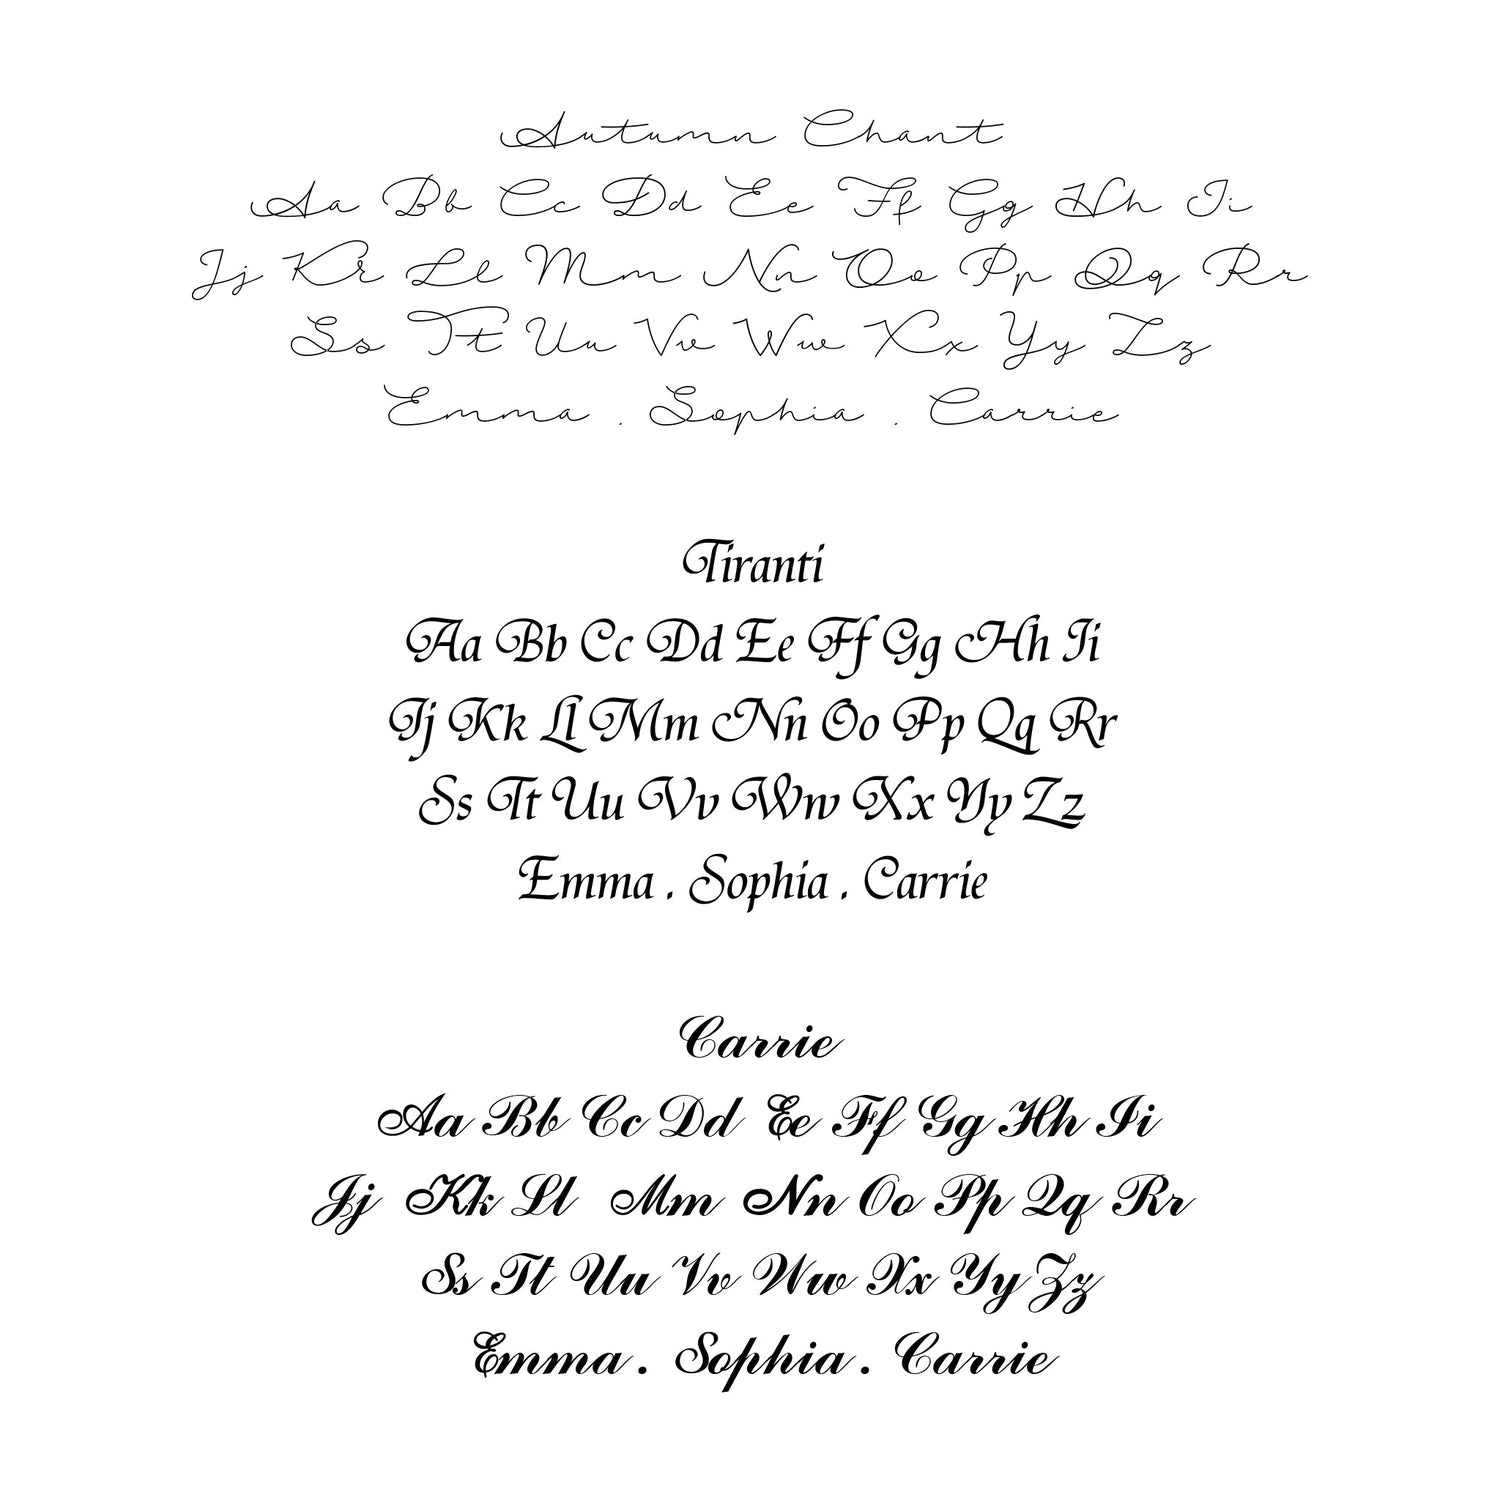 Autumn Chant
Aa Bb Cc Dd Ee Ff Gg Hh Ii
Jj Kk Ll Mm Nn Oo Pp Qq Rr
Ss Tt Uu Vv Ww Xx Yy Zz
Emma . Sophia . Carrie
Tiranti
Aa Bb Cc Dd Ee Ff Gg Hh Ii
Jj Kk Ll Mm Nn Oo Pp Qq Rr
Ss Tt Uu Vv Ww Xx Yy Zz
Emma . Sophia . Carrie
Carrie
Aa Bb Cc Dd Ee Ff Gg Hh Ii
Jj Kk Ll Mm Nn Oo Pp Qq Rr
Ss Tt Uu Vv Ww Xx Yy Zz
Emma . Sophia . Carrie